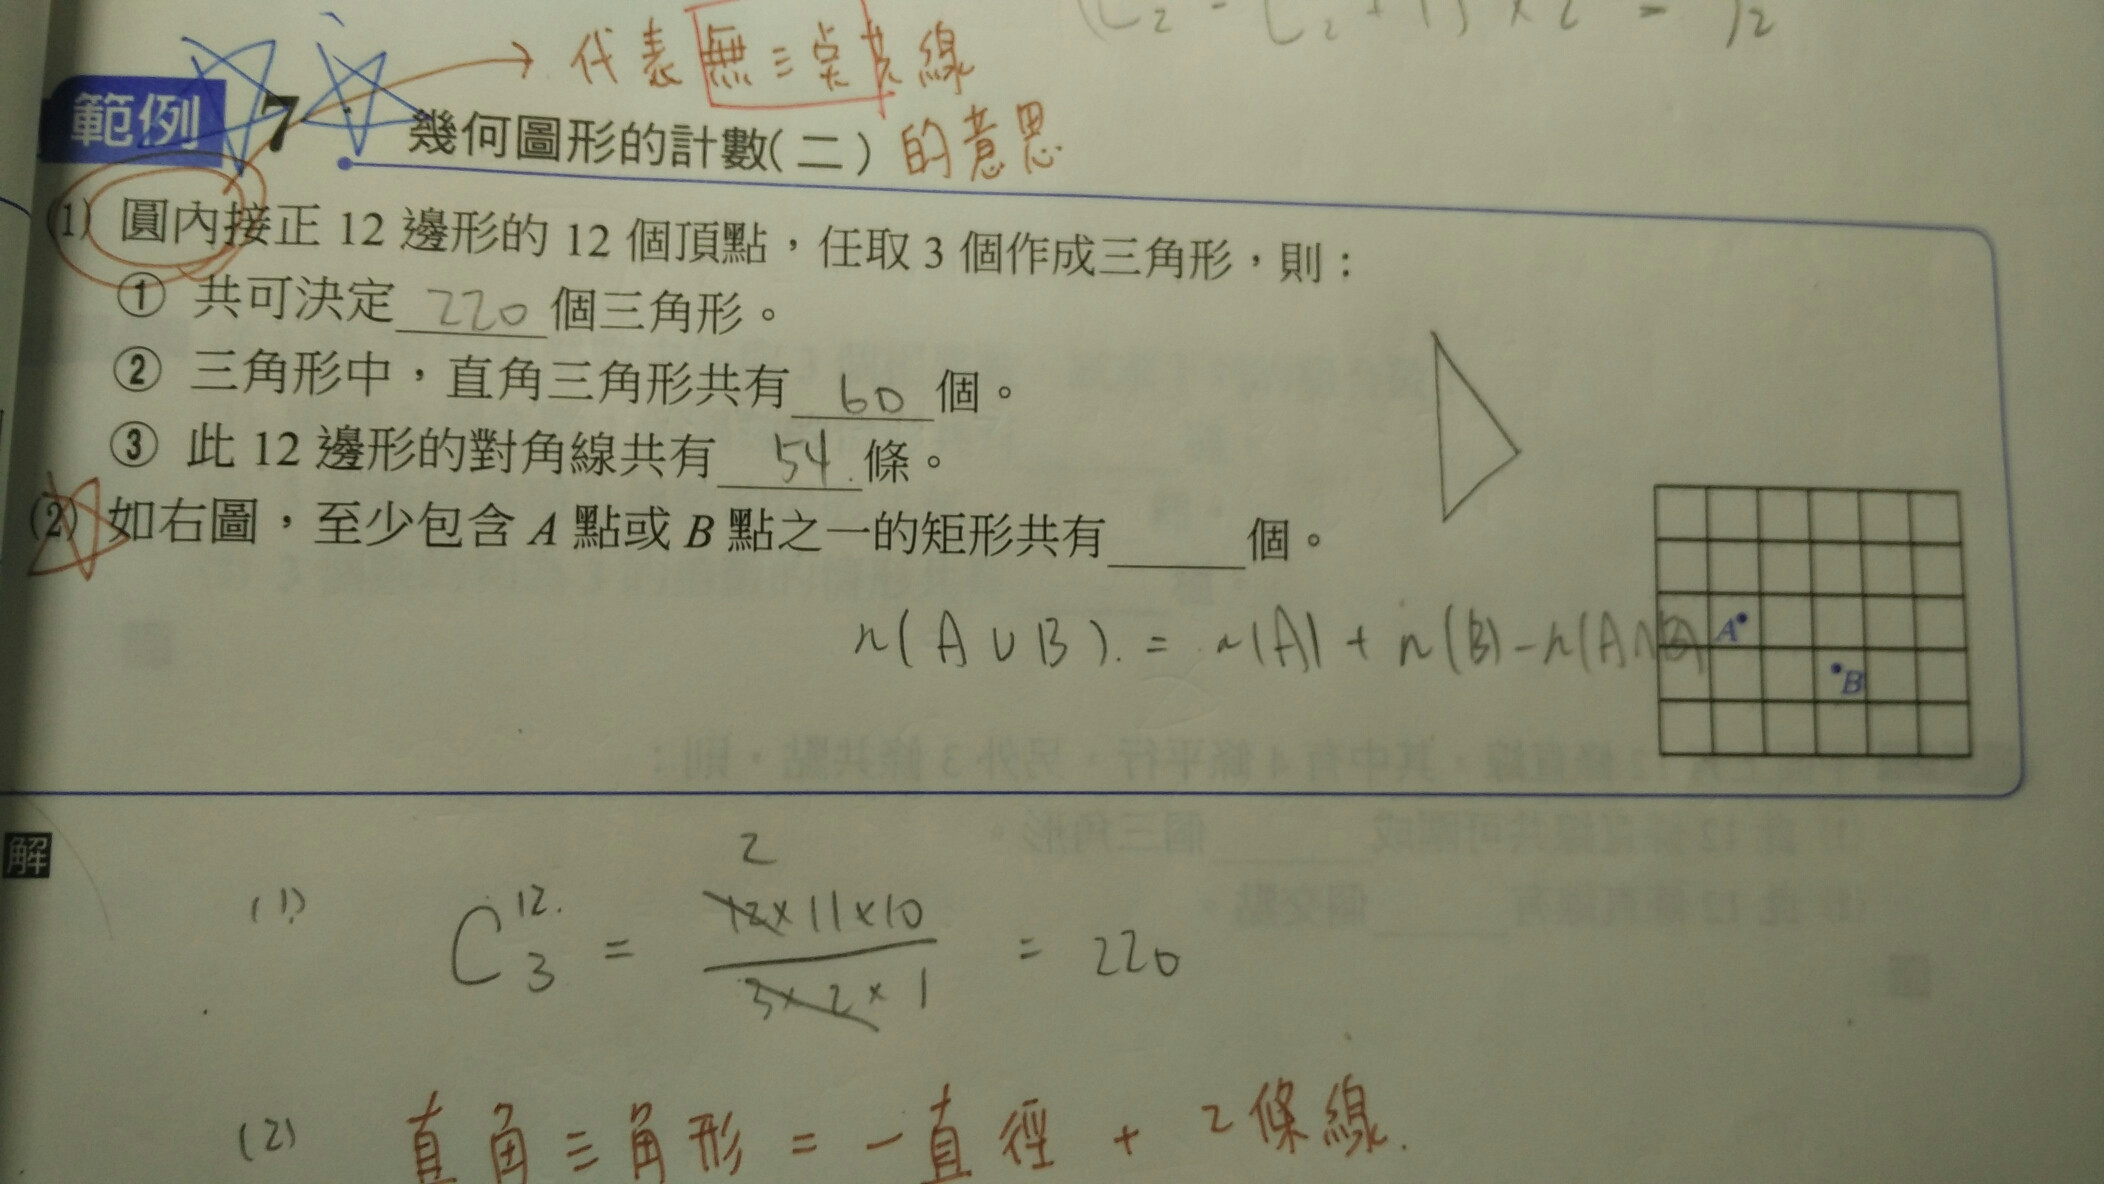 代表無三點共線
範例 7 幾何圖形的計數(二) 的意思
(1) 圓內接正 12 邊形的 12 個頂點,任取 3 個作成三角形,則:
① 共可決定 220 個三角形。
② 三角形中,直角三角形共有 60 個。
③ 此 12 邊形的對角線共有 54 條。
(2) 如右圖,至少包含 A 點或 B 點之一的矩形共有_____個。
n(A∪B) = n(A) + n(B) - n(A∩B)
A
B
解
(1) C 12 3 = 12×11×10 / 3×2×1 = 220
2
(2) 直角三角形 = 一直徑 + 2條線.